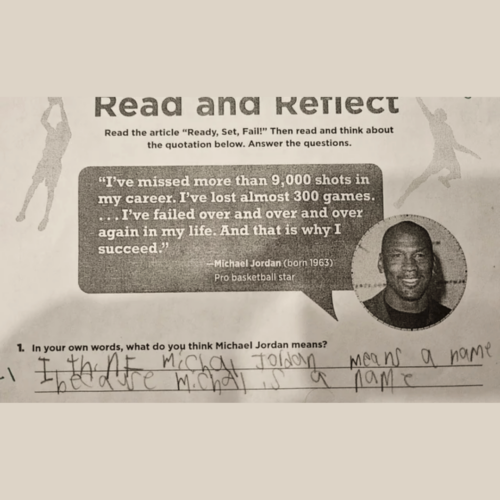 Read and Reflect
Read the article “Ready, Set, Fail!” Then read and think about
the quotation below. Answer the questions.
“I’ve missed more than 9,000 shots in
my career. I’ve lost almost 300 games.
. . . I’ve failed over and over and over
again in my life. And that is why I
succeed.”
—Michael Jordan (born 1963)
Pro basketball star
1. In your own words, what do you think Michael Jordan means?
-1 I think Michal Jordan means a name
because Michall is a name